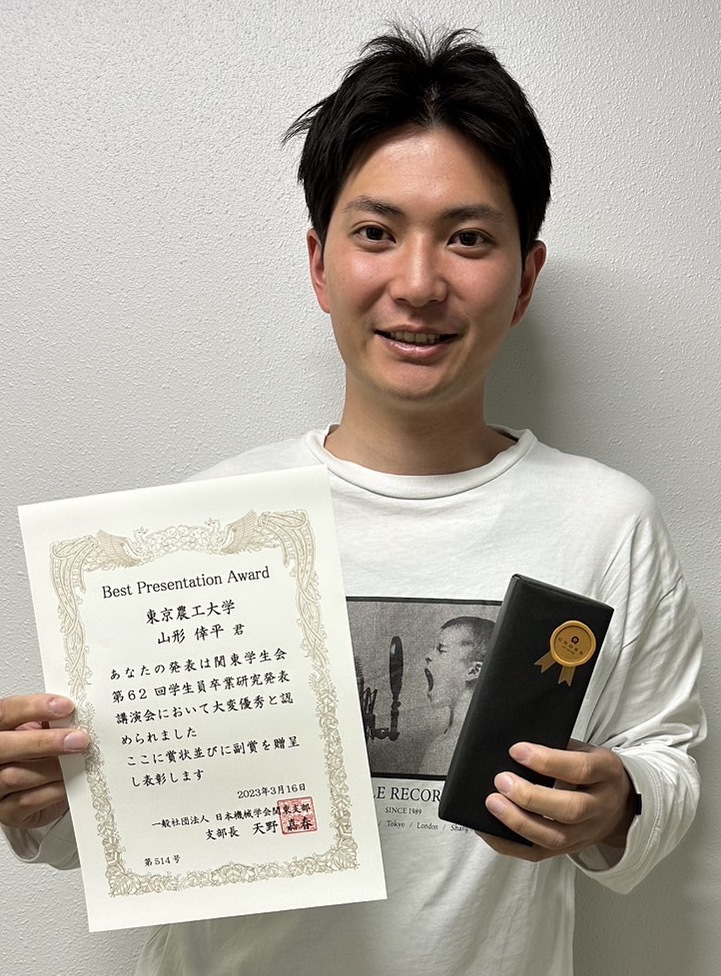 Best Presentation Award
東京農工大学
山形 倖平 君
あなたの発表は関東学生会
第62回学生員卒業研究発表
講演会において大変優秀と認
められました
ここに賞状並びに副賞を贈呈
し表彰します
2023年3月16日
一般社団法人 日本機械学会関東支部
支部長 天野 嘉春
第514号
CROSS
LE RECOR
SINCE 1989
/ Tokyo / London / Shang